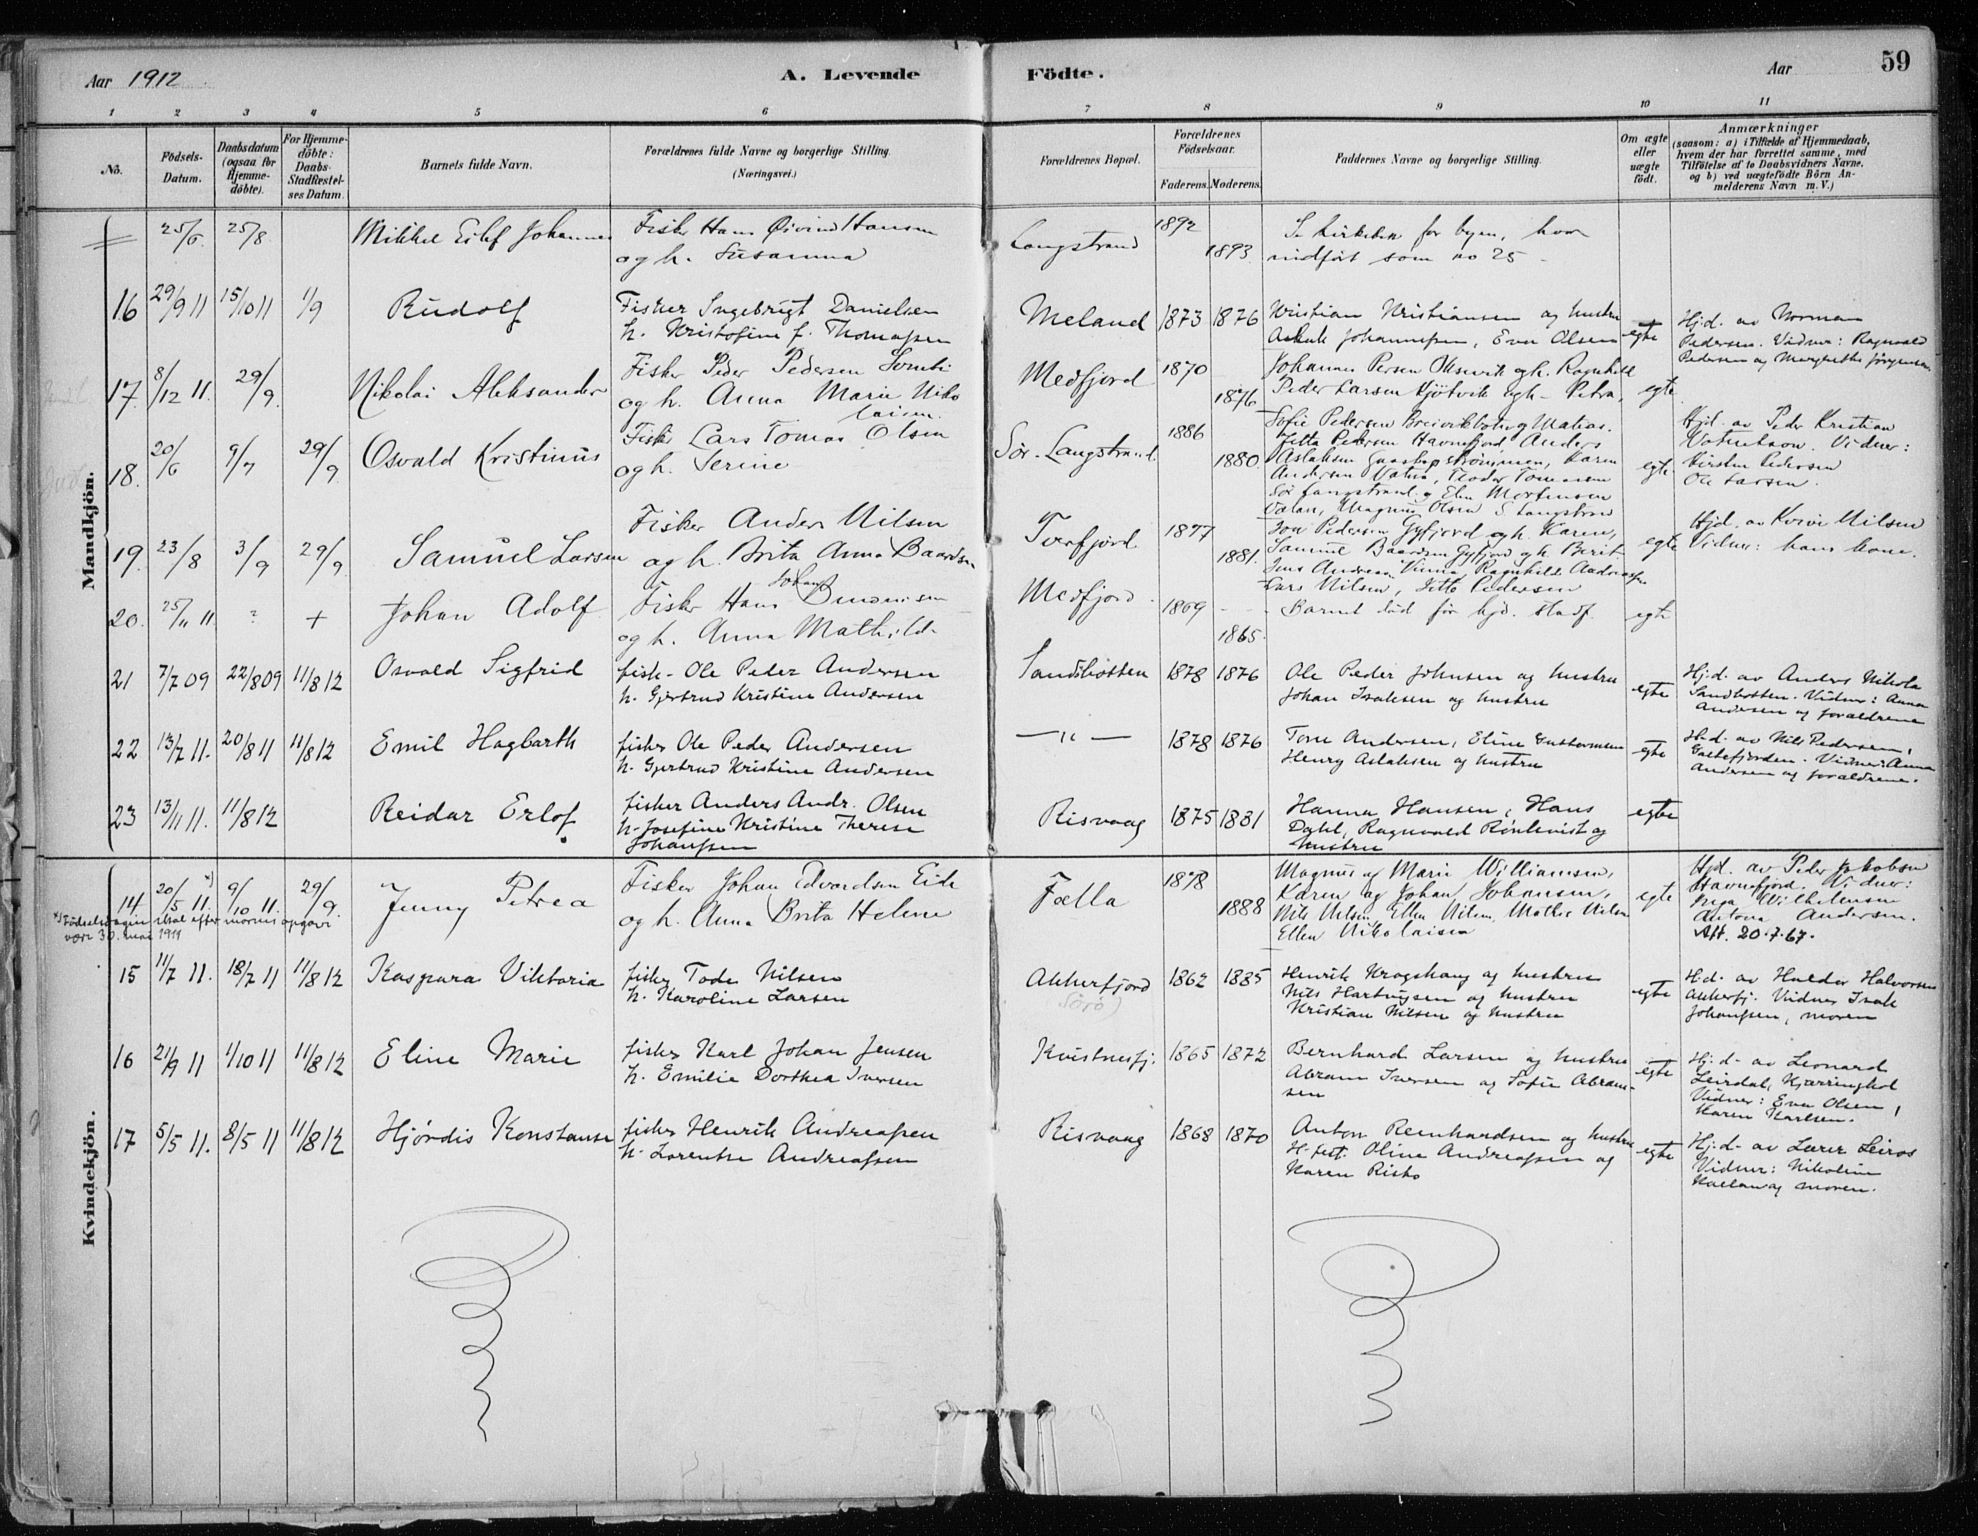 Aar 1912
A. Levende
Födte.
Aar
59
1 2 3 4 5 6 7 8 9 10 11
No.
Födsels-
Datum.
Daabsdatum
(ogsaa for
Hjemme-
döbte).
For Hjemme-
döbte:
Daabs-
Stadfestel-
ses Datum.
Barnets fulde Navn.
Forældrenes fulde Navne og borgerlige Stilling.
(Næringsvei.)
Forældrenes Bopæl.
Forældrenes
Födselsaar.
Faderens. Moderens.
Faddernes Navne og borgerlige Stilling.
Om ægte
eller
uægte
födt.
Anmærkninger
(saasom: a) i Tilfælde af Hjemmedaab,
hvem der har forrettet samme, med
Tilföielse af to Daabsvidners Navne,
og b) ved uægtefödte Börn An-
melderens Navn m. V.)
Mandkjön.
25/6 25/8 Mikkel Eilef Johannes
Fisker Hans Øivind Hansen
og h. Susanna
Langstrand 1892 1893
Se kirkebok for byen, hvor
indført som no 25 -
16 29/9 11 15/10 11 1/9 Rudolf
Fisker Ingebrigt Danielsen
h. Kristofine f. Thomassen
Meland 1873 1876
Kristian Kristiansen og hustru
Johannessen, Eva Olsen
egte
Hj.d. av Norman
Pedersen. Vidner: Ragnvald
Pedersen og Margrethe Jørgensen
17. 8/12 11. 29/9. Nikolai Aleksander
Fisker Peder Pedersen
og h. Anna Marie Niko
laisen.
Medfjord 1870 1876
Johannes Persen og h. Ragnhild
Peder Larsen og h. Petra,
egte
18. 20/6 9/7 29/9. Osvald Kristinus
Fisker Lars Tomas Olsen
og h. Serine
Sör-Langstrand. 1886 1880.
Sofie Pedersen Breivikbotn og Matias.
Jetta Pedersen Havnefjord, Anders
Aslaksen Karen
Andersen Teodor
Sör Langstrand og Elen Mortensen
Magnus Olsen S Langstrand
egte.
Hjd. av Peder Kristian
Vidner:
Kirsten Pedersen
Ole Larsen.
19. 23/8 3/9 29/9. Samuel Larsen
Fisker Anders Nilsen
og h. Brita Anna Baardsen
Tverfjord. 1877 1881.
Jon Pedersen Gyfjord og h. Karen,
Samuel Baardsen Gyfjord og h. Berit
Jens Andreas Ragnhild
Lars Nilsen, Jetto Pedersen
egte
Hjd. av Nilsen
Vidner: hans kone.
20. 25/11 11 ? + Johan Adolf
Johans
Fisker Hans Simonsen
og h. Anna Mathilde
Medfjord. 1869 1865.
- - - Barnet död før hjd. stadf.
egte
21 7/7 09 22/8 09 11/8 12 Osvald Sigfrid
fisk- Ole Peder Andersen
h. Gjertrud Kristine Andersen
Sandbotten 1878 1876
Ole Peder Johnsen og hustru
Johan Isaksen og hustru
egte
Hj.d. av Anders Nikola
Sandbotten. Vidner: Anna
Andersen og forældrene
22 13/7 11. 20/8 11 11/8 12 Emil Hagbarth
fisker Ole Peder Andersen
h. Gjertrud Kristine Andersen
— " — 1878 1876
Tore Andersen, Eline Gustavsen
Henry Aslaksen og hustru
egte
H.d. av Nils Pedersen,
Galtefjorden. Vidner: Anna
Andersen og forældrene.
23 13/11 11. 11/8 12 Reidar Erlof
fisker Anders Andr. Olsen
h. Josefine Kristine Therese
Johanssen
Risvaag 1875 1881
Hanna Hansen, Hans
Dahl, Ragnvald Rönkvist og
hustru
egte
Kvindekjön.
14 20/5 11. x) 9/10 11 29/9. Jenny Petrea
x) Födselsdagen skal efter morens opgave
være 30. mai 1911
Fisker Johan Edvardsen Eide
og h. Anna Brita Helene
Fælla 1878 1888
Magnus og Marie Williamsen,
Karen og Johan Johansen,
Nils Nilsen, Ellen Nilsen, Mathis Nilsen
Ellen Nikolaisen
egte
Hjd. av Peder Jakobsen
Havnefjord. Vidner:
Inga Wilhelmsen
Antona Andersen.
Att. 20.7.67.
15 11/7 11. 18/7 11 11/8 12 Kaspara Viktoria
fisker Tode Nilsen
h. Karoline Larsen
Akkerfjord
Sörö)
1862 1885
Henrik Kragshaug og hustru
Nils Hartvigsen og hustru
Kristian Nilsen og hustru
egte
H.d. av Haldor Halvorsen
Akkerfj. Vidner Isak
Johanssen, moren
16 21/9 11 1/10 11 11/8 12 Eline Marie
fisker Karl Johan Jensen
h. Emilie Dorthea Iversen
Kvistnesfj. 1865 1872
Bernhard Larsen og hustru
Abram Iversen og Sofie Abram-
sen
egte
Hj.d. av Leonard
Leirdal, Kjærringhol
Vidner: Eva Olsen,
Karen Karlsen.
17 5/5 11. 8/5 11 11/8 12 Hjördis Konstanse
fisker Henrik Andreassen
h. Lorentse Andreassen
Risvaag 1868 1870
Anton Reinhardsen og hustru
H-fest. Oline Andreassen og
Karen Risko
egte
Hj.d. av Lærer Leiros
Vidner: Nikoline
og moren.